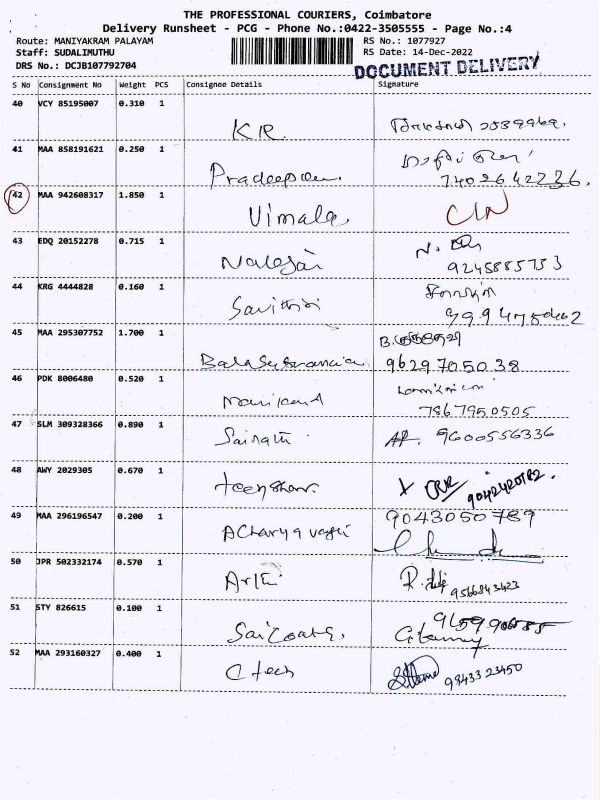 THE PROFESSIONAL COURIERS, Coimbatore
Delivery Runsheet - PCG - Phone No.:0422-3505555 - Page No.:4
Route: MANIYAKRAM PALAYAM
RS No.: 1077927
Staff: SUDALIMUTHU
RS Date: 14-Dec-2022
DRS No.: DCJB107792704
DOCUMENT DELIVERY
S No Consignment No Weight PCS Consignee Details Signature
40 VCY 85195007 0.310 1
KR.
41 MAA 858191621 0.250 1
7402642236.
42 MAA 942608317 1.850 1
Vimala.
43 EDQ 20152278 0.715 1
9245885753
44 KRG 4444828 0.160 1
Savithiri
45 MAA 295307752 1.700 1
9629705038
46 PDK 8006480 0.520 1
Manikand
7867950505
47 SLM 309328366 0.890 1
Sairam. 9600556336
48 AWY 2029305 0.670 1
49 MAA 296196547 0.200 1
9043050789
50 JPR 502332174 0.570 1
51 STY 826615 0.100 1
52 MAA 293160327 0.400 1
C tech 9843323450